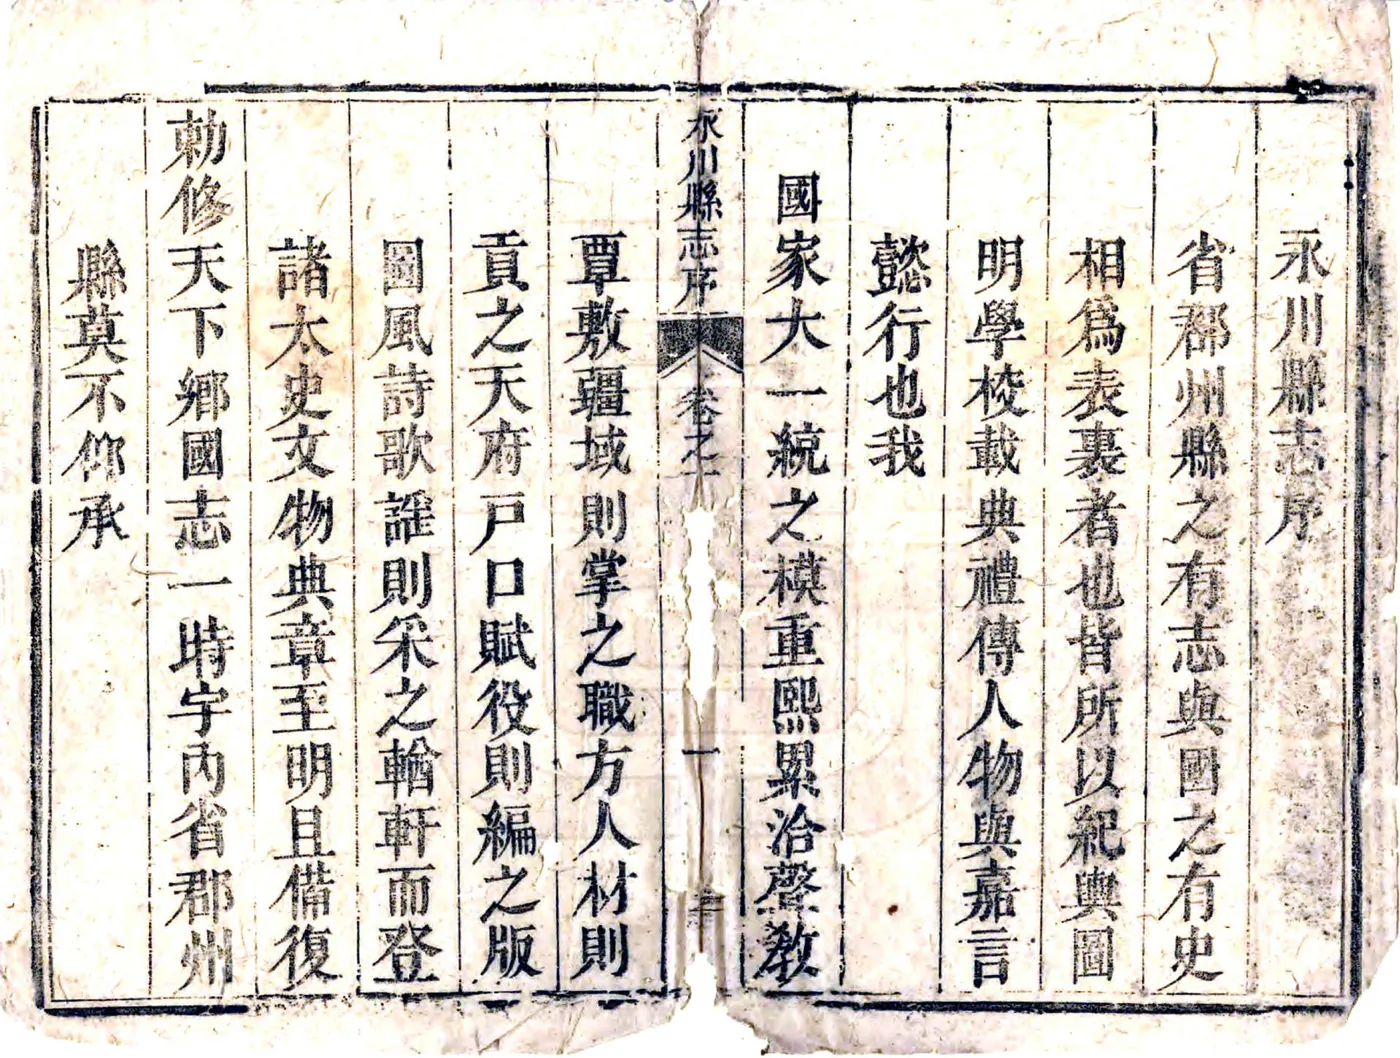 永川縣志序
省郡州縣之有志與國之有史
相為表裏者也皆所以紀輿圖
明學校載典禮傳人物與嘉言
懿行也我
國家大一統之模重熙累洽聲敎
永川縣志序
卷之一
一
覃敷疆域則掌之職方人材則
貢之天府戸口賦役則編之版
圖風詩歌謠則采之輶軒而登
諸太史文物典章至明且備復
勅修天下鄉國志一時宇內省郡州
縣莫不仰承